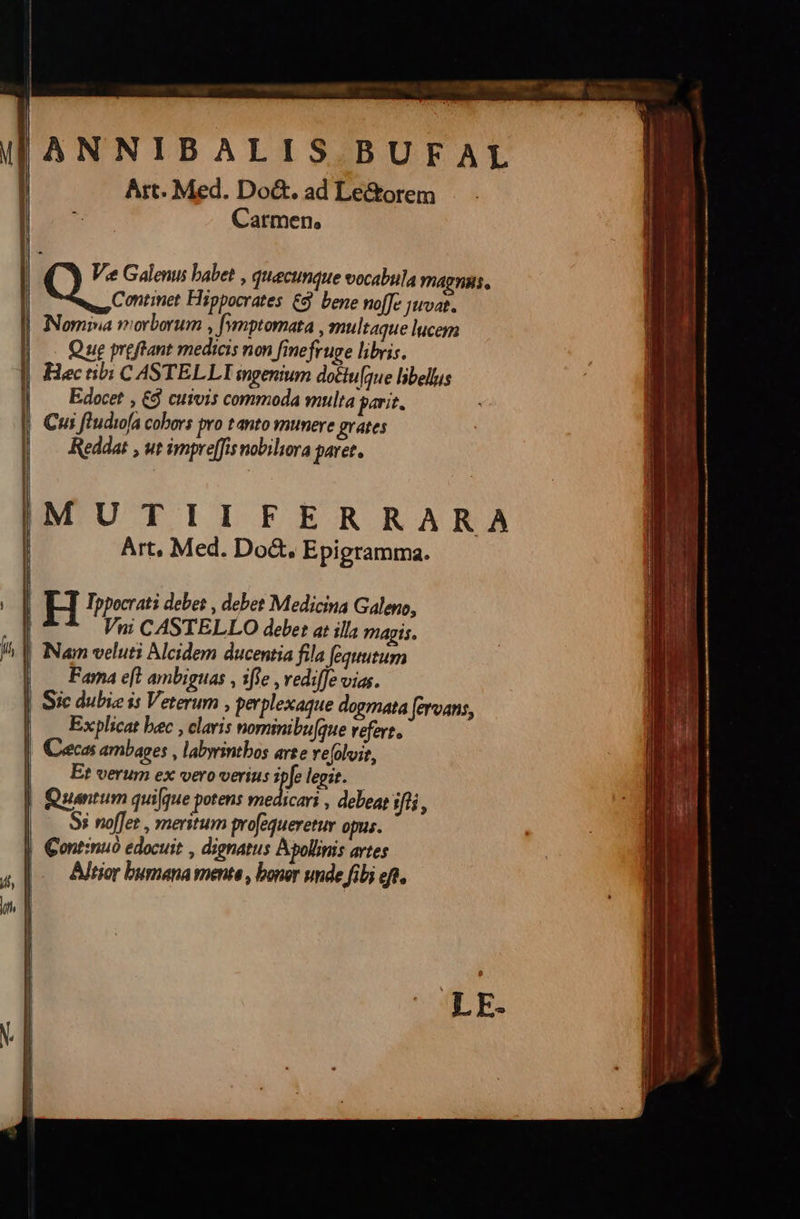 ANNIBALIS BUFAL
Art. Med. Doct. ad Lectorem
Carmen.
QVæ Galenus habet , quæcunque vocabula magnus.
Continet Hippocrates & bene noſſe juvat.
Nomina morborum , ſymptomata , multaque lucem
Quę preſtant medicis non ſine fruge libris.
Hæc tibi CASTELLI ingenium doctuſque libellus
Edocet , & cuivis commoda multa parit.
Cui ſtudioſa cohors pro tanto munere grates
Reddat , ut impreſſis nobiliora paret.
MUTII FERRARA
Art. Med. Doct. Epigramma.
HIppocrati debet , debet Medicina Galeno,
Vni CASTELLO debet at illa magis.
Nam veluti Alcidem ducentia fila ſequutum
Fama eſt ambiguas , iſſe , rediſſe vias.
Sic dubiæ is Veterum , perplexaque dogmata ſervans,
Explicat hæc , claris nominibuſque refert.
Cæcas ambages , labyrinthos arte reſolvit,
Et verum ex vero verius ipſe legit.
Quantum quiſque potens medicari , debeat iſti ,
Si noſſet , meritum proſequeretur opus.
Continuò edocuit , dignatus Apollinis artes
Altior humana mente , honor unde ſibi eſt.
LE-